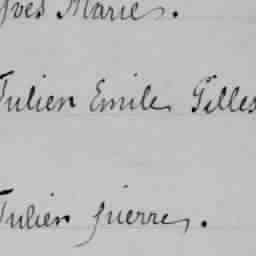 Yves Marie.
Julien Emile Gilles
Julien Pierre.